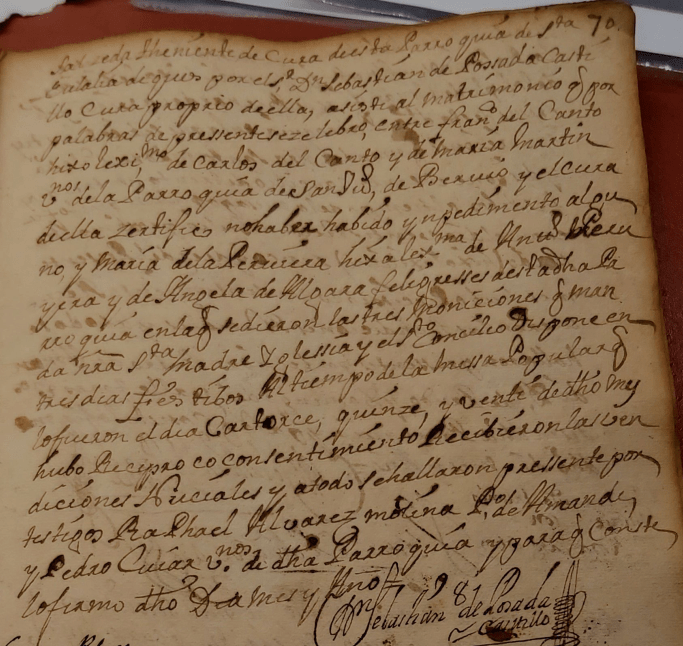 70.
Salzeda theniente de Cura de esta Parroquia de Sta
Eulalia de quis por el Sr. Dn Sebastián de Possada Casti
llo Cura proprio de ella, asisti al matrimonio q por
palabras de pressente sezelebro, entre Franco del Canto
hixo lexi,mo de Carlos del Canto y de Maria Martin
v.nos de la Parroquia de San de y el Cura
de ella zertifico nohaber habido ynpedimento algu
no, y Maria de la Peruyera hixa lexma de Peru
yera y de Angela de Algara feligresses desta dha Pa
rroquia en la q sedieron las tres moniciones q man
da nra Sta Madre Yglessia y el Sto Concilio dispone en
tres dias festibos Al tiempo de la missa Popular q
lo fueron el dia Cartorce, quinze, y venti de dho mes
hubo Reciproco consentimiento Recibieron las ven
diciones Nuciales y atodo se hallaron pressente por
testigos Raphael Alvarez molina Po de
y Pedro Cuiar v.nos de dha Parroquia y para q Conste
lo firmo dho Dia mes y Año
Dn Sebastian de Posada
Castillo